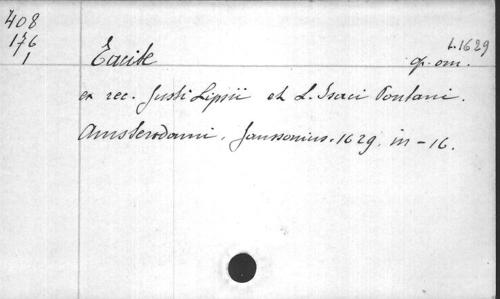 408
176
1
L.1629
Tacite op. om.
ex rec. Justi Lipsii et L. Isaci Pontani.
Amsterodami. Janssonius. 1629. in-16.